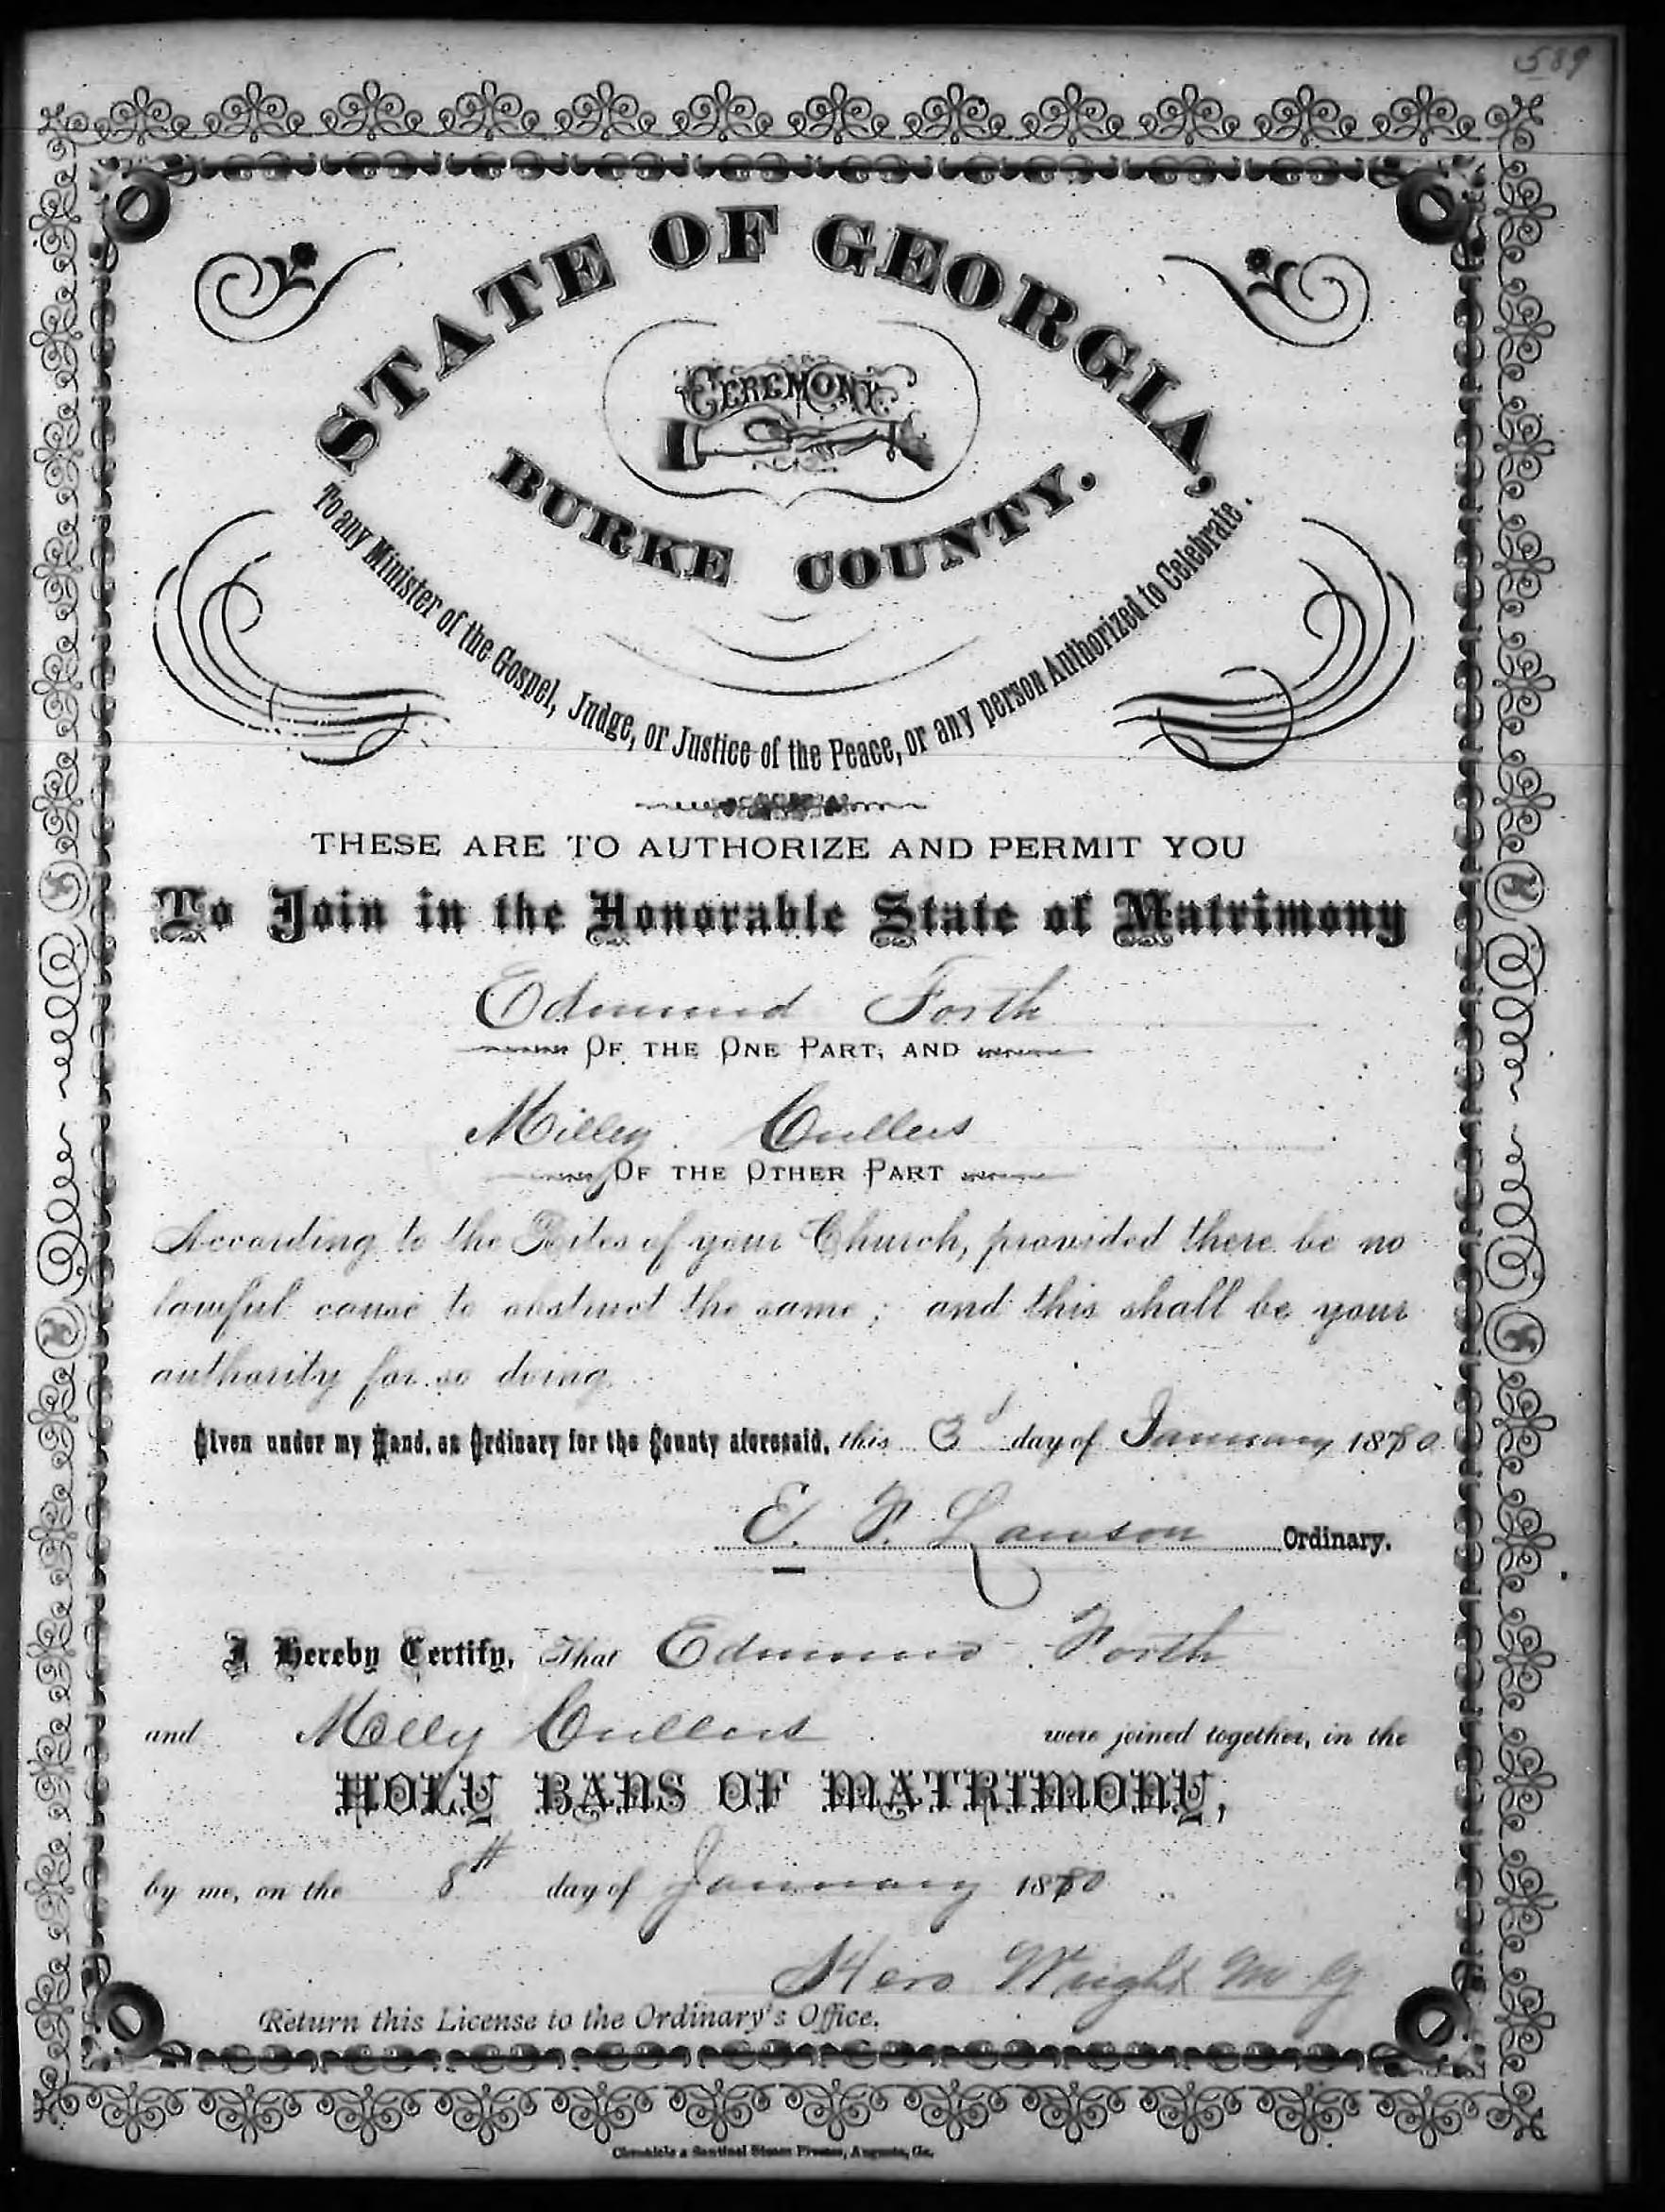 589
STATE OF GEORGIA,
CEREMONY
BURKE COUNTY.
To any Minister of the Gospel, Judge, or Justice of the Peace, or any person Authorized to Celebrate.
THESE ARE TO AUTHORIZE AND PERMIT YOU
To Join in the Honorable State of Matrimony
Edmund Forth
OF THE ONE PART, AND
Milley Cullers
OF THE OTHER PART
According to the Rites of your Church, provided there be no
lawful cause to obstruct the same; and this shall be your
authority for so doing.
Given under my Hand, as Ordinary for the County aforesaid, this 3d day of January 1880
E. F. Lawson Ordinary.
I Hereby Certify, That Edmund Forth
and Milly Cullers were joined together, in the
HOLY BANS OF MATRIMONY,
by me, on the 8th day of January 1880
Wright M G
Return this License to the Ordinary's Office.
Chronicle & Sentinel Steam Presses, Augusta, Ga.